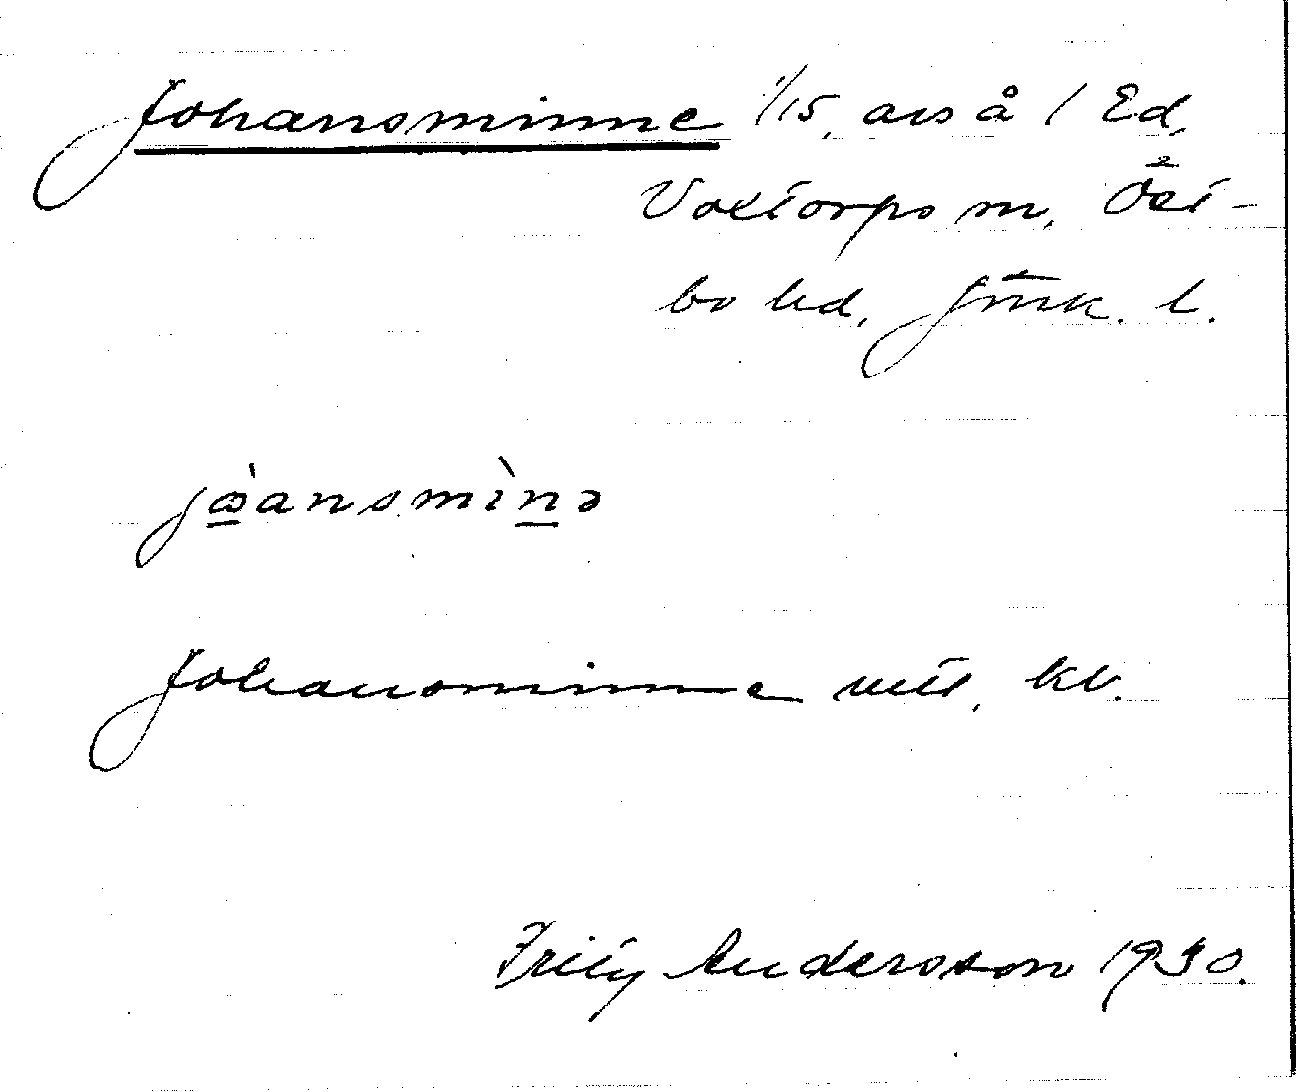 Johansminne 1/15, avs å 1 Ed,
Voxtorps sn, Öst-
bo hd, Jönk. l.
jȯ̱ansmìṉə
Johansminne uttl. kb.
Fritz Andersson 1930.